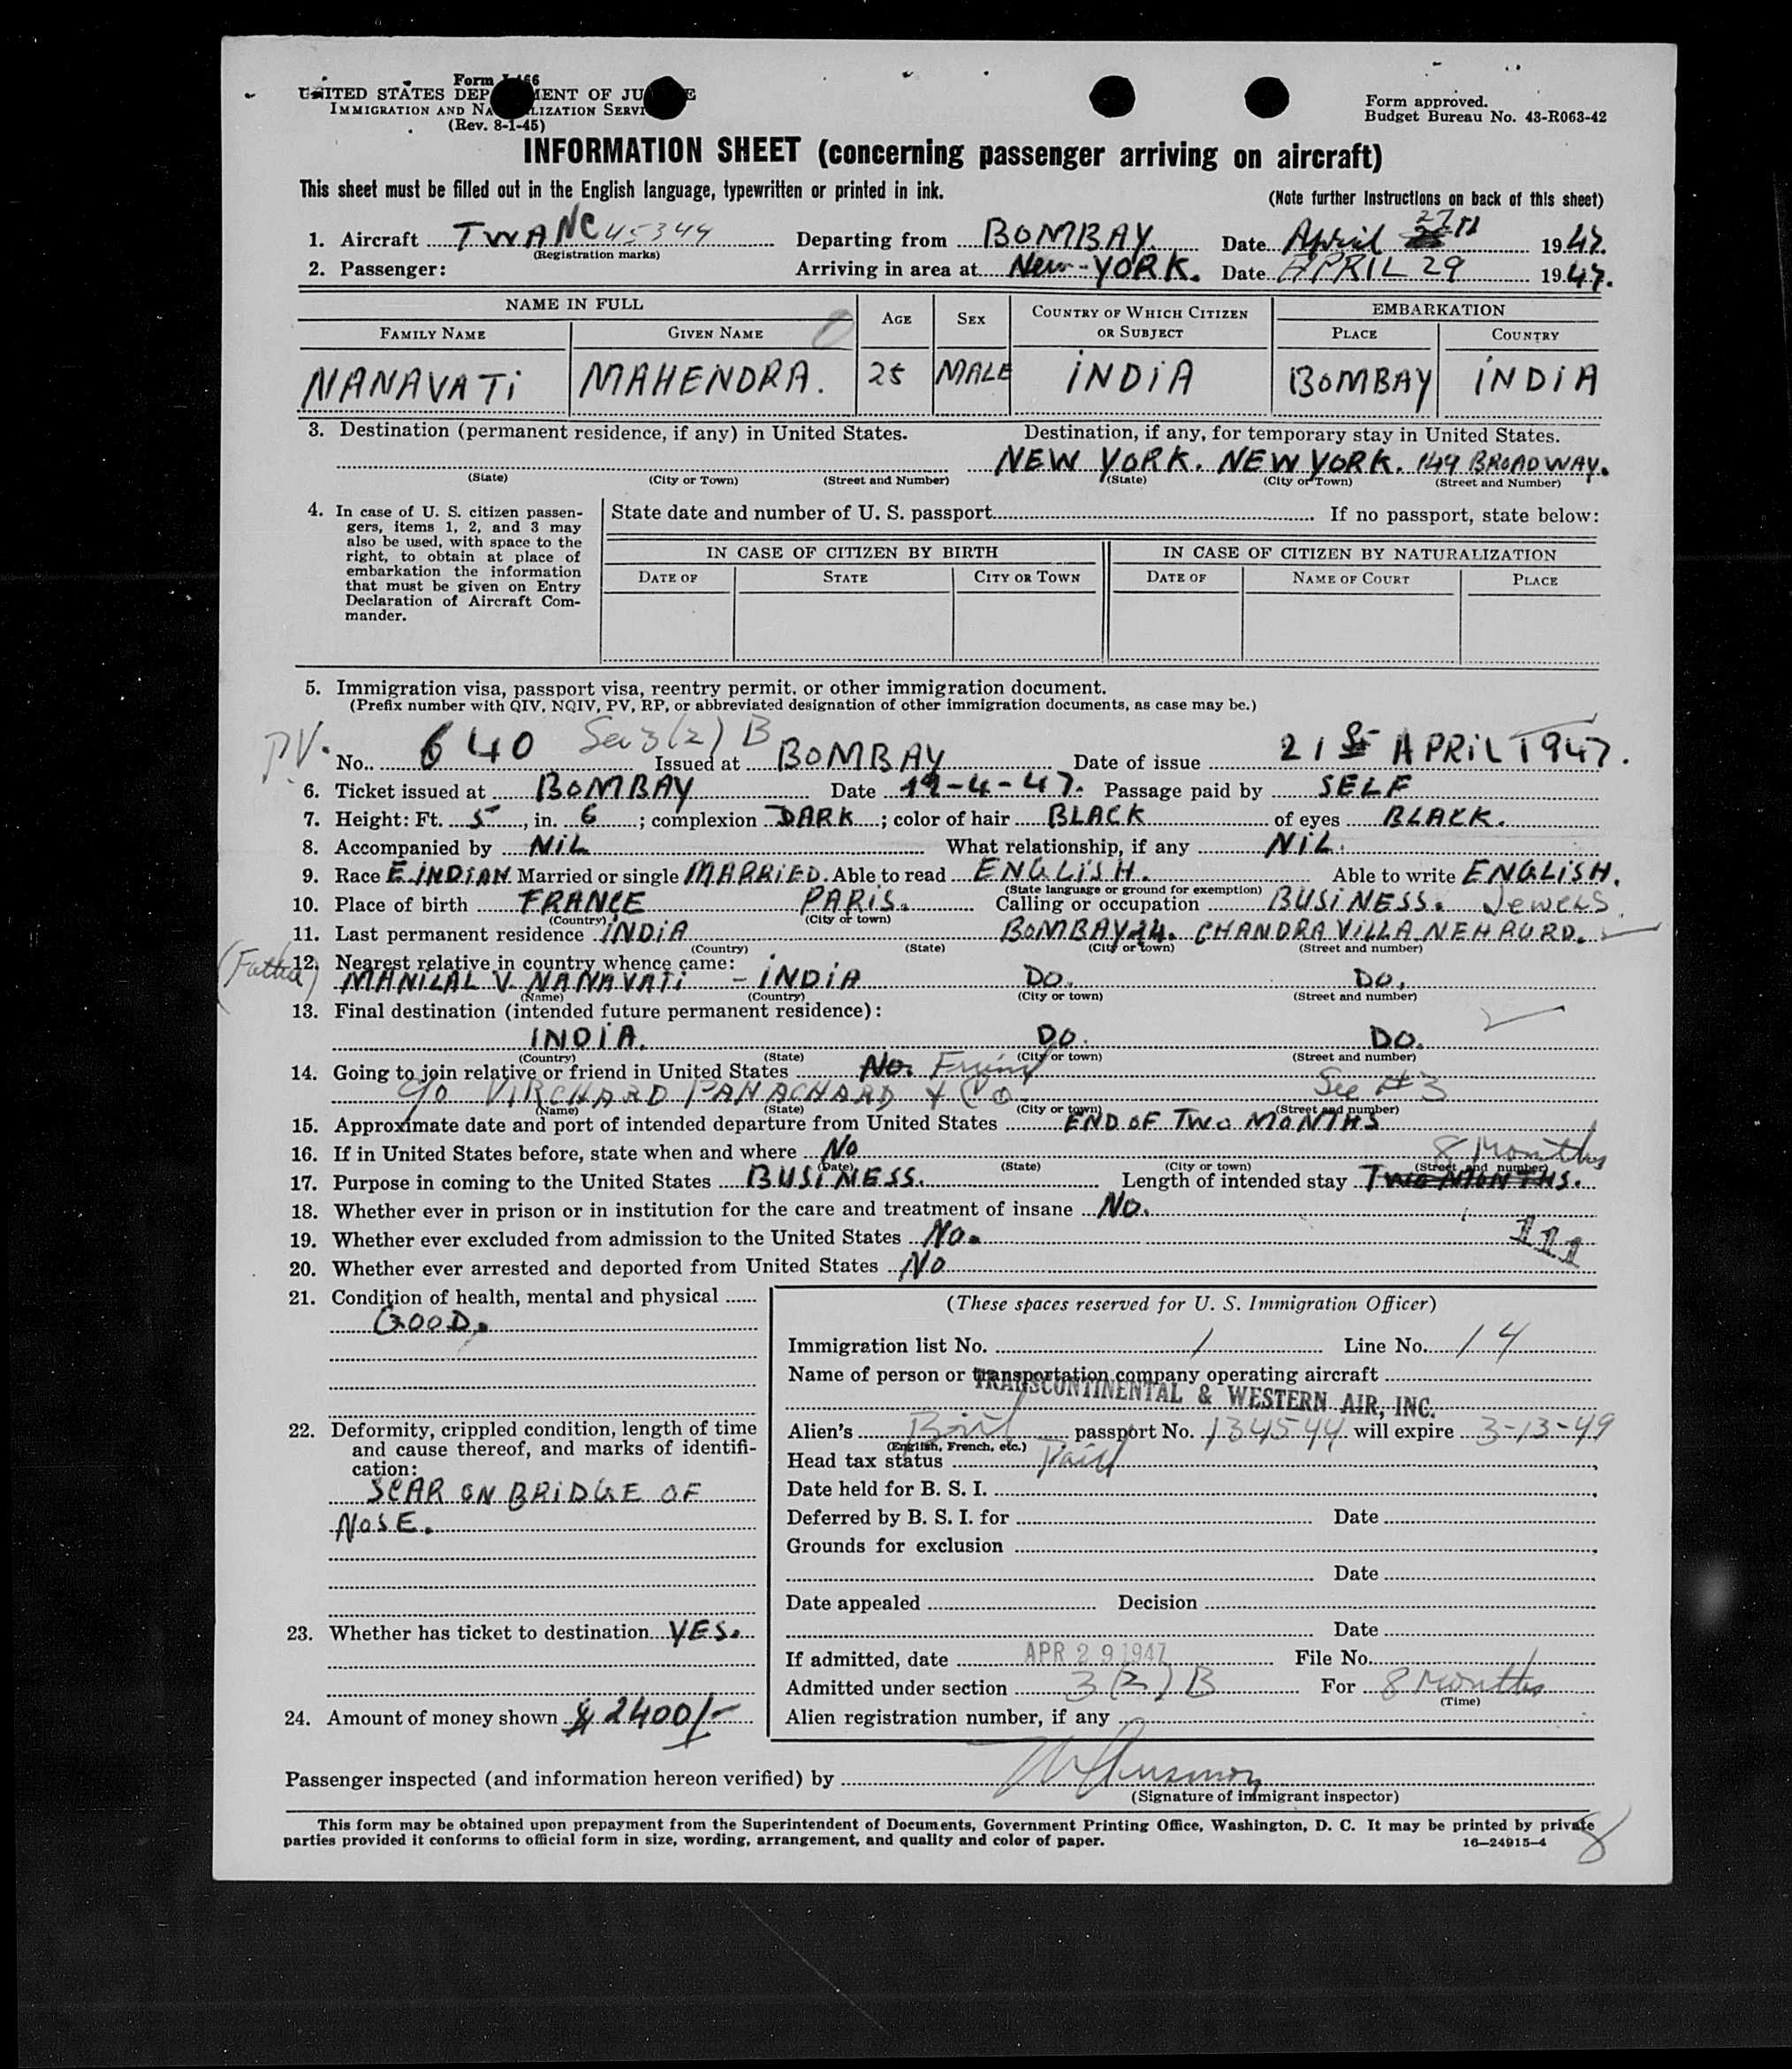 Form I-466
UNITED STATES DEPARTMENT OF JUSTICE
IMMIGRATION AND NATURALIZATION SERVICE
(Rev. 8-1-45)
Form approved.
Budget Bureau No. 43-R063-42
INFORMATION SHEET (concerning passenger arriving on aircraft)
This sheet must be filled out in the English language, typewritten or printed in ink.
(Note further instructions on back of this sheet)
1. Aircraft TWA NC 45344 Departing from BOMBAY. Date April 27th 1947.
(Registration marks)
2. Passenger: Arriving in area at New-YORK. Date APRIL 29 1947.
NAME IN FULL AGE SEX COUNTRY OF WHICH CITIZEN OR SUBJECT EMBARKATION
FAMILY NAME GIVEN NAME PLACE COUNTRY
NANAVATI MAHENDRA. 25 MALE INDIA BOMBAY INDIA
3. Destination (permanent residence, if any) in United States. Destination, if any, for temporary stay in United States.
NEW YORK. NEW YORK. 149 BROADWAY.
(State) (City or Town) (Street and Number) (State) (City or Town) (Street and Number)
4. In case of U. S. citizen passengers, items 1, 2, and 3 may also be used, with space to the right, to obtain at place of embarkation the information that must be given on Entry Declaration of Aircraft Commander.
State date and number of U. S. passport If no passport, state below:
IN CASE OF CITIZEN BY BIRTH IN CASE OF CITIZEN BY NATURALIZATION
DATE OF STATE CITY OR TOWN DATE OF NAME OF COURT PLACE
5. Immigration visa, passport visa, reentry permit, or other immigration document.
(Prefix number with QIV, NQIV, PV, RP, or abbreviated designation of other immigration documents, as case may be.)
P.V. No. 640 Sec 3(2) B Issued at BOMBAY Date of issue 21st APRIL 1947.
6. Ticket issued at BOMBAY Date 19-4-47. Passage paid by SELF
7. Height: Ft. 5, in. 6; complexion DARK; color of hair BLACK of eyes BLACK.
8. Accompanied by NIL What relationship, if any NIL.
9. Race E.INDIAN Married or single MARRIED. Able to read ENGLISH. Able to write ENGLISH.
(State language or ground for exemption)
10. Place of birth FRANCE PARIS. Calling or occupation BUSINESS. Jewels
(Country) (City or town)
11. Last permanent residence INDIA BOMBAY 24. CHANDRA VILLA NEHRU RD.
(Country) (State) (City or town) (Street and number)
(Father) 12. Nearest relative in country whence came:
MANILAL V. NANAVATI - INDIA DO. DO.
(Name) (Country) (City or town) (Street and number)
13. Final destination (intended future permanent residence):
INDIA. DO. DO.
(Country) (State) (City or town) (Street and number)
14. Going to join relative or friend in United States No. Friend
c/o VIRCHARD PANACHARD & Co. See #3
(Name) (State) (City or town) (Street and number)
15. Approximate date and port of intended departure from United States END OF TWO MONTHS
16. If in United States before, state when and where No
(Date) (State) (City or town) (Street and number)
8 Months
17. Purpose in coming to the United States BUSINESS. Length of intended stay TWO MONTHS.
18. Whether ever in prison or in institution for the care and treatment of insane No.
19. Whether ever excluded from admission to the United States No.
111
20. Whether ever arrested and deported from United States No
21. Condition of health, mental and physical
GOOD.
22. Deformity, crippled condition, length of time and cause thereof, and marks of identification:
SCAR ON BRIDGE OF
NOSE.
23. Whether has ticket to destination YES.
24. Amount of money shown $ 2400/-
(These spaces reserved for U. S. Immigration Officer)
Immigration list No. 1 Line No. 14
Name of person or transportation company operating aircraft
TRANSCONTINENTAL & WESTERN AIR, INC.
Alien's Brit passport No. 134544 will expire 3-13-49
(English, French, etc.)
Head tax status Paid
Date held for B. S. I.
Deferred by B. S. I. for Date
Grounds for exclusion
Date
Date appealed Decision
Date
If admitted, date APR 29 1947 File No.
Admitted under section 3(2) B For 8 Months
(Time)
Alien registration number, if any
Passenger inspected (and information hereon verified) by
(Signature of immigrant inspector)
This form may be obtained upon prepayment from the Superintendent of Documents, Government Printing Office, Washington, D. C. It may be printed by private
parties provided it conforms to official form in size, wording, arrangement, and quality and color of paper. 16—24915-4
8